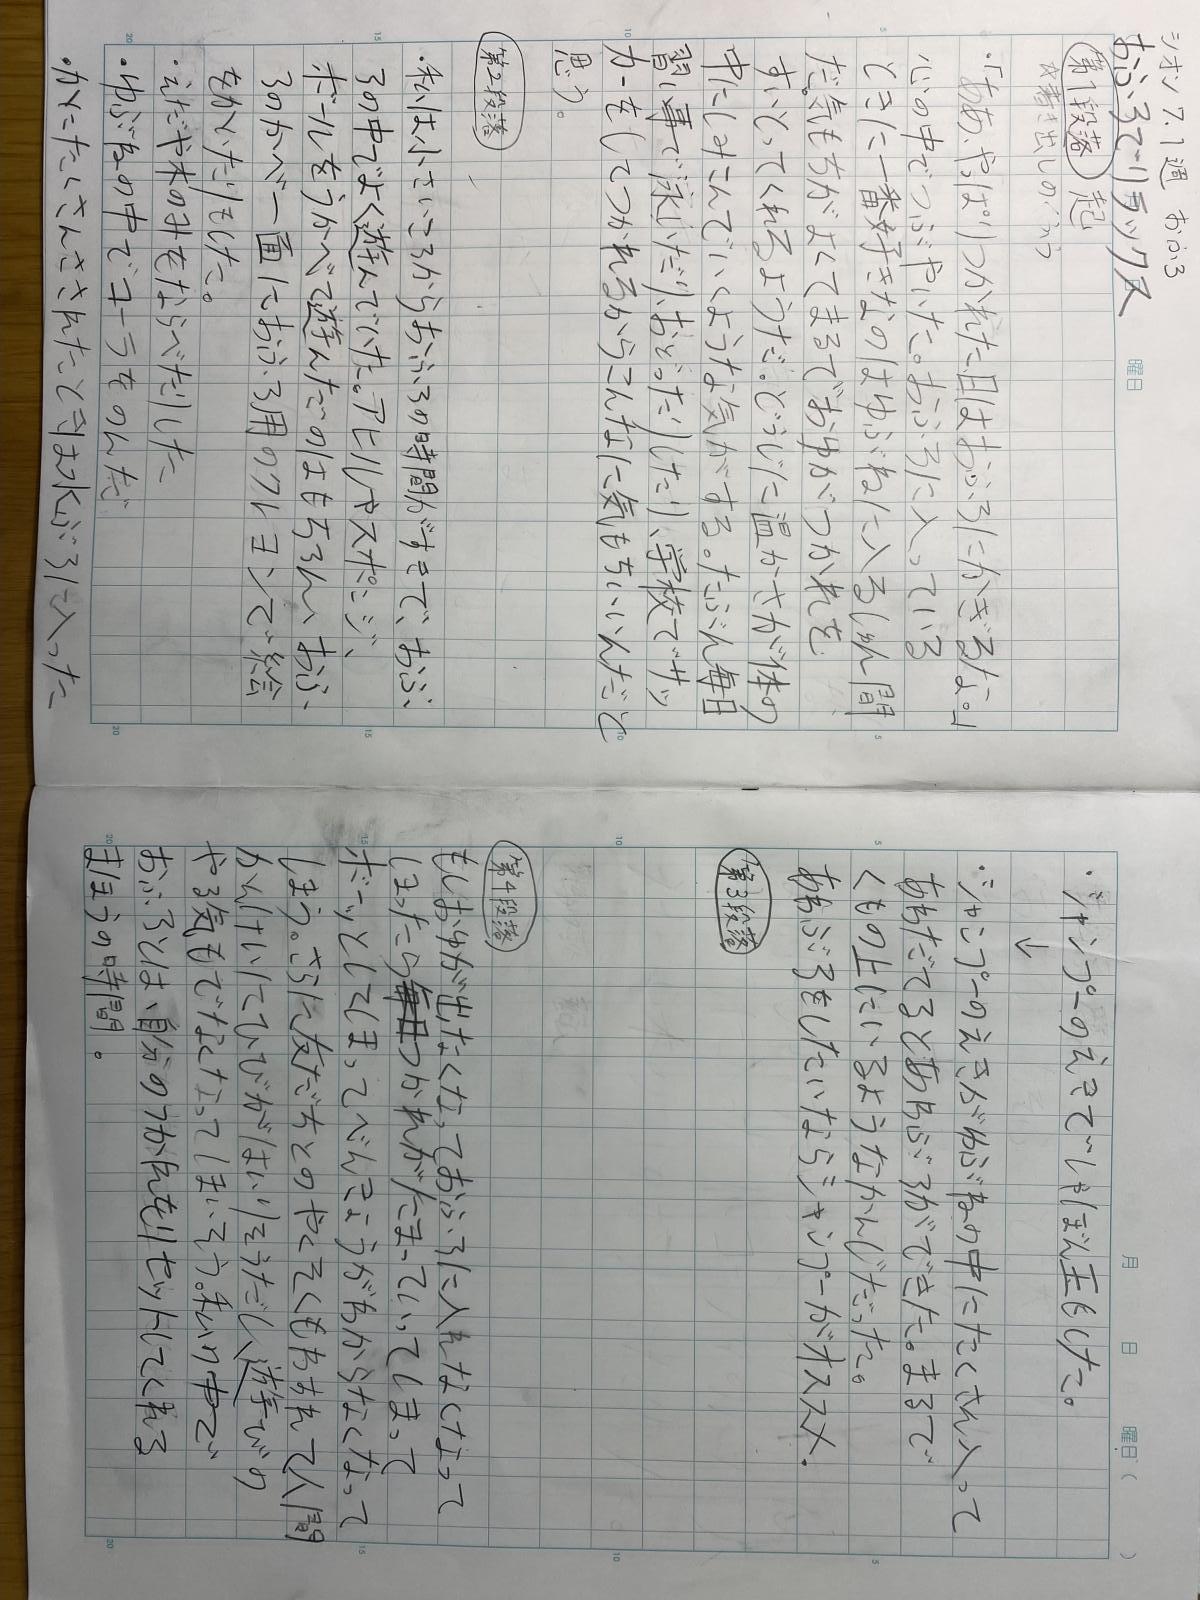 シオン 7.1週 おふろ
おふろでリラックス
第1段落 起
☆書き出しのくふう
・「ああ、やっぱりつかれた日はおふろにかぎるなぁ」
心の中でつぶやいた。おふろに入っている
ときに一番好きなのはゆぶねに入るしゅん間
だ。気もちがよくてまるでおゆがつかれを
すいとってくれるようだ。どうじに温かさが体の
中にしみこんでいくような気がする。たぶん毎日
習い事で泳いだり、おどったりしたり、学校でサッ
カーをしてつかれるからこんなに気もちいいんだと
思う。
第2段落
・私は小さいころからおふろの時間がすきで、おふ
ろの中でよく遊んでいた。アヒルやスポンジ、
ボールをうかべて遊んだのはもちろん、おふ
ろのかべ一面におふろ用クレヨンで絵
をかいたりもした。
・えだや木のみをならべたりした
・ゆぶねの中でコーラをのんだ
・かにたくさんさされたときは水ぶろに入った
・シャンプーのえきでしゃぼん玉をした。
↓
・シャンプーのえきがゆぶねの中にたくさん入って
あわだてるとあわぶろができた。まるで
くもの上にいるようなかんじだった。
あわぶろをしたいならシャンプーがオススメ。
第3段落
第4段落
もしおゆが出なくなっておふろに入れなくなって
しまったら毎日つかれがたまっていってしまって
ボーッとしてしまってべんきょうがわからなくなって
しまう。さらに友だちとのやくそくもわすれて人間
かんけいにひびがはいりそうだし、遊びの
やる気もでなくなってしまいそう。私の中で
おふろとは、自分のつかれをリセットしてくれる
まほうの時間。
月 日 曜日( )
曜日